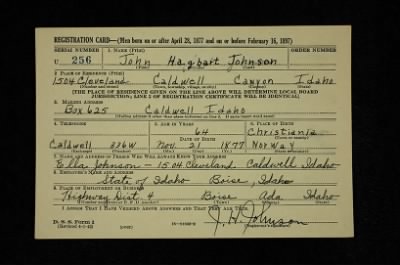 REGISTRATION CARD—(Men born on or after April 28, 1877 and on or before February 16, 1897)
SERIAL NUMBER 1. NAME (Print)
U 256 John Hagbart Johnson
2. PLACE OF RESIDENCE (Print)
1504 Cleveland Caldwell Canyon Idaho
(Number and street) (Town, township, village, or city) (County) (State)
[THE PLACE OF RESIDENCE GIVEN ON THE LINE ABOVE WILL DETERMINE LOCAL BOARD
JURISDICTION; LINE 2 OF REGISTRATION CERTIFICATE WILL BE IDENTICAL]
3. MAILING ADDRESS
Box 625 Caldwell Idaho
[Mailing address if other than place indicated on line 2. If same insert word same]
4. TELEPHONE 5. AGE IN YEARS 6. PLACE OF BIRTH
64 Christiania
DATE OF BIRTH
Caldwell 336W Nov. 21 1877 Norway
(Exchange) (Number) (Mo.) (Day) (Yr.) (State or country)
7. NAME AND ADDRESS OF PERSON WHO WILL ALWAYS KNOW YOUR ADDRESS
Ella Johnson - 1504 Cleveland Caldwell Idaho
8. EMPLOYER'S NAME AND ADDRESS
State of Idaho Boise, Idaho
9. PLACE OF EMPLOYMENT OR BUSINESS
Highway Dist. 4 Boise Ada Idaho
(Number and street or R. F. D. number) (Town) (County) (State)
I AFFIRM THAT I HAVE VERIFIED ABOVE ANSWERS AND THAT THEY ARE TRUE.
D. S. S. Form 1
J. H. Johnson
(Registrant's signature)